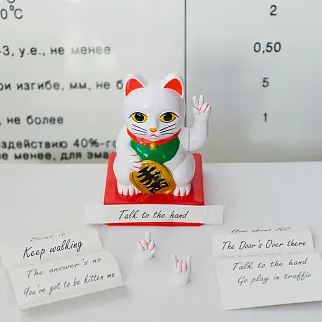 0°C
2
-3, у.е., не менее
0,50
ри изгибе, мм, не б
5
, не более
1
здействию 40%-го
не менее, для эма
Talk to the hand
Beat it
Keep walking
The answer's no
You've got to be kitten me
How about NO
The Door's Over there
Talk to the hand
Go play in traffic